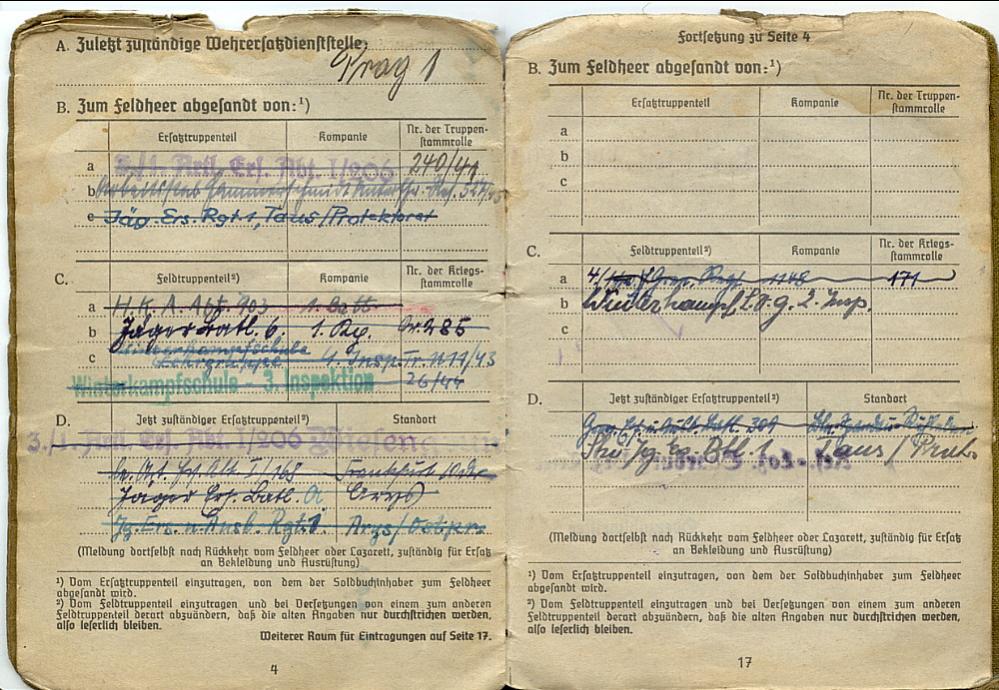 A. Zuletzt zuständige Wehrersatzdienststelle:
Prag 1
B. Zum Feldheer abgesandt von:¹)
Ersatztruppenteil Kompanie Nr. der Truppenstammrolle
a 3./1. Artl. Ers. Abt. I/206 240/41
b Arbeitsstab
c Jäg. Ers. Rgt. 1, Taus/Protektorat
C. Feldtruppenteil²) Kompanie Nr. der Kriegsstammrolle
a H.K.A. Abt. 903 1. Batt.
b Jäger Batl. 6. 1. Kp. Nr. 285
c Winterkampfschule
Lehrgruppe 4. Insp. Tr. N 19/43
Winterkampfschule - 3. Inspektion 26/44
D. Jetzt zuständiger Ersatztruppenteil²) Standort
3./1. Artl. Ers. Abt. I/206
Frankfurt Oder
Jäger Ers. Batl. Arys
Jg. Ers. u. Ausb. Rgt. 1 Arys/Ostpr.
(Meldung dortselbst nach Rückkehr vom Feldheer oder Lazarett, zuständig für Ersatz
an Bekleidung und Ausrüstung)
¹) Vom Ersatztruppenteil einzutragen, von dem der Soldbuchinhaber zum Feldheer
abgesandt wird.
²) Vom Feldtruppenteil einzutragen und bei Versetzungen von einem zum anderen
Feldtruppenteil derart abzuändern, daß die alten Angaben nur durchstrichen werden,
also leserlich bleiben.
Weiterer Raum für Eintragungen auf Seite 17.
4
Fortsetzung zu Seite 4
B. Zum Feldheer abgesandt von:¹)
Ersatztruppenteil Kompanie Nr. der Truppenstammrolle
a
b
c
C. Feldtruppenteil²) Kompanie Nr. der Kriegsstammrolle
a 1148 171
b 2. Insp.
c
D. Jetzt zuständiger Ersatztruppenteil²) Standort
Btl. 1. Taus / Prot.
(Meldung dortselbst nach Rückkehr vom Feldheer oder Lazarett, zuständig für Ersatz
an Bekleidung und Ausrüstung)
¹) Vom Ersatztruppenteil einzutragen, von dem der Soldbuchinhaber zum Feldheer
abgesandt wird.
²) Vom Feldtruppenteil einzutragen und bei Versetzungen von einem zum anderen
Feldtruppenteil derart abzuändern, daß die alten Angaben nur durchstrichen werden,
also leserlich bleiben.
17